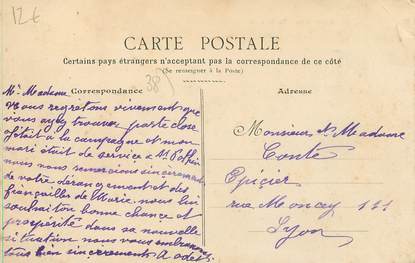 12€
CARTE POSTALE
Certains pays étrangers n'acceptant pas la correspondance de ce côté
(Se renseigner à la Poste)
Correspondance
38
Adresse
Mr Madame
Nous regrettons vivement que
vous ayez trouvé porte close
J'étais à la campagne et mon
mari était de service à
nous vous remercions sincèrement
de votre dérangement et des
fiançailles de Marie. nous lui
souhaiton bonne chance et
prospérité dans sa nouvelle
situation nous vous embrassons
tous bien sincèrement
Monsieur et Madame
Conte
Epicier
rue Moncey 111
Lyon